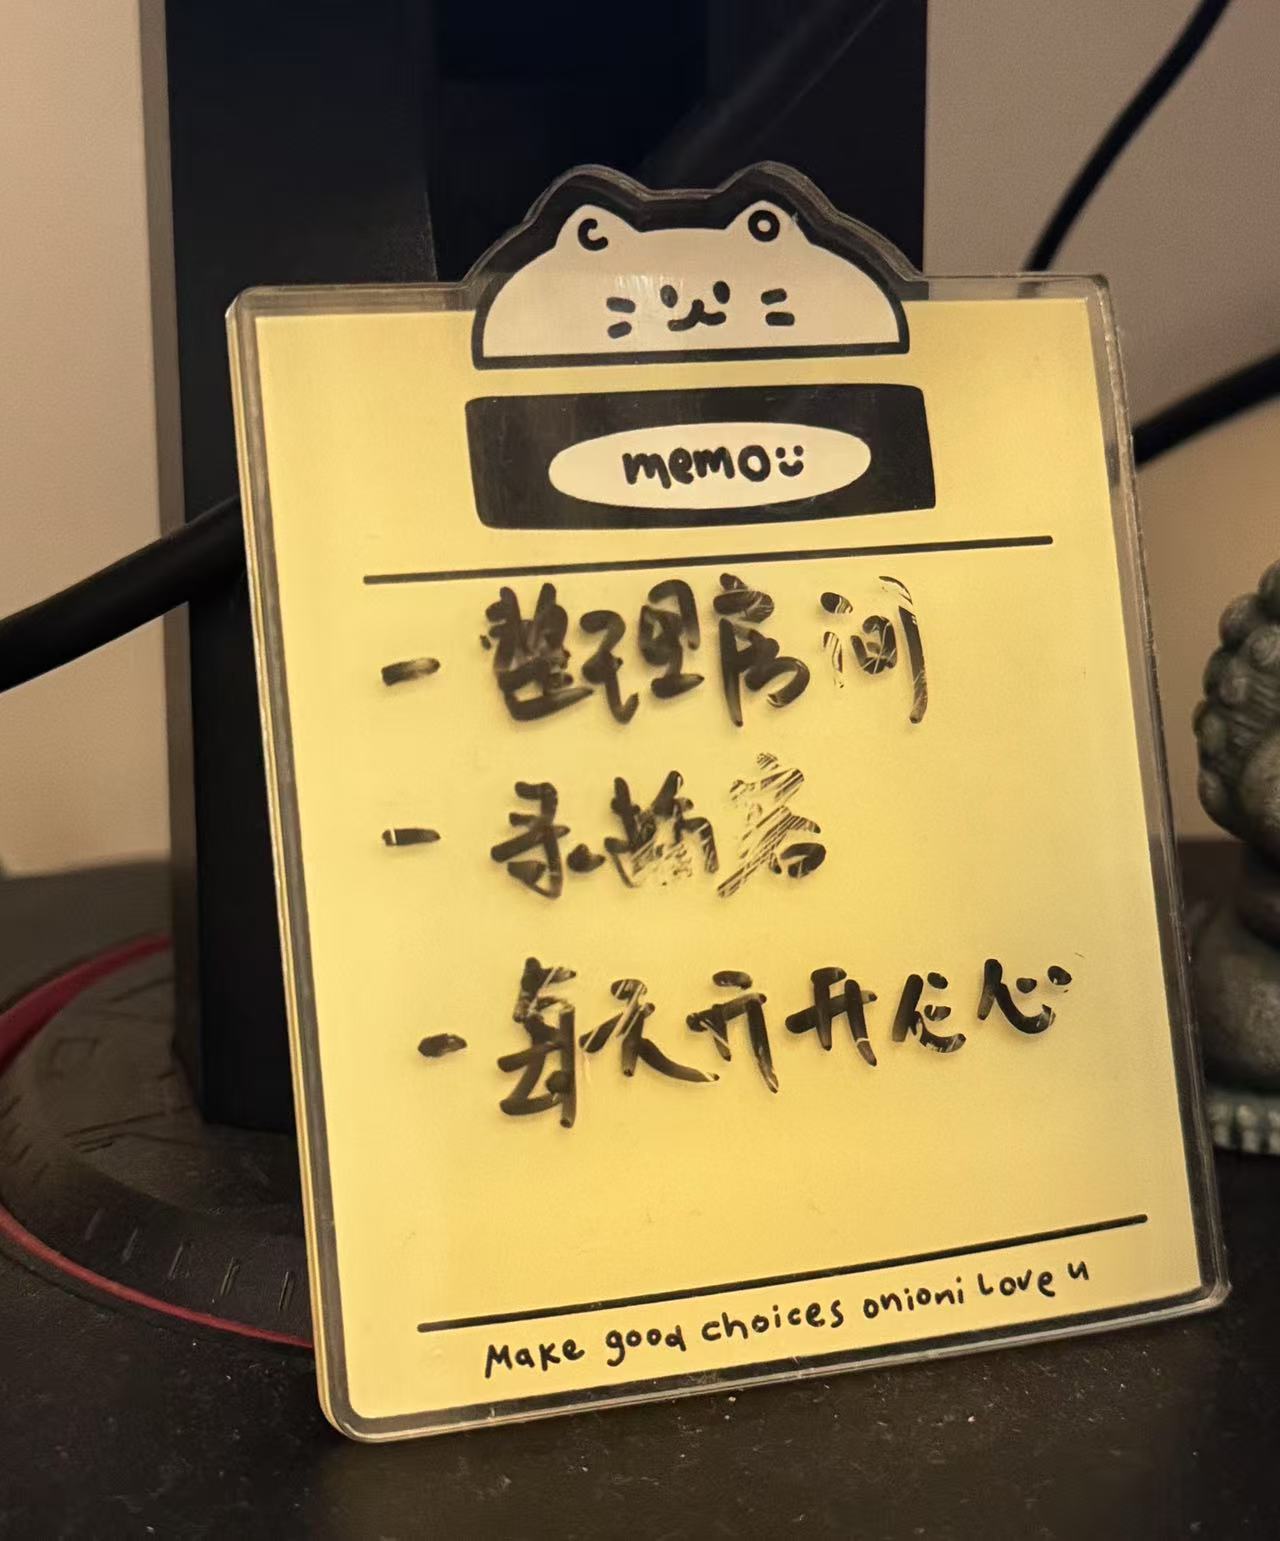 C O
memo
- 整理房间
- 录播客
- 每天开开心心
Make good choices onioni Love u